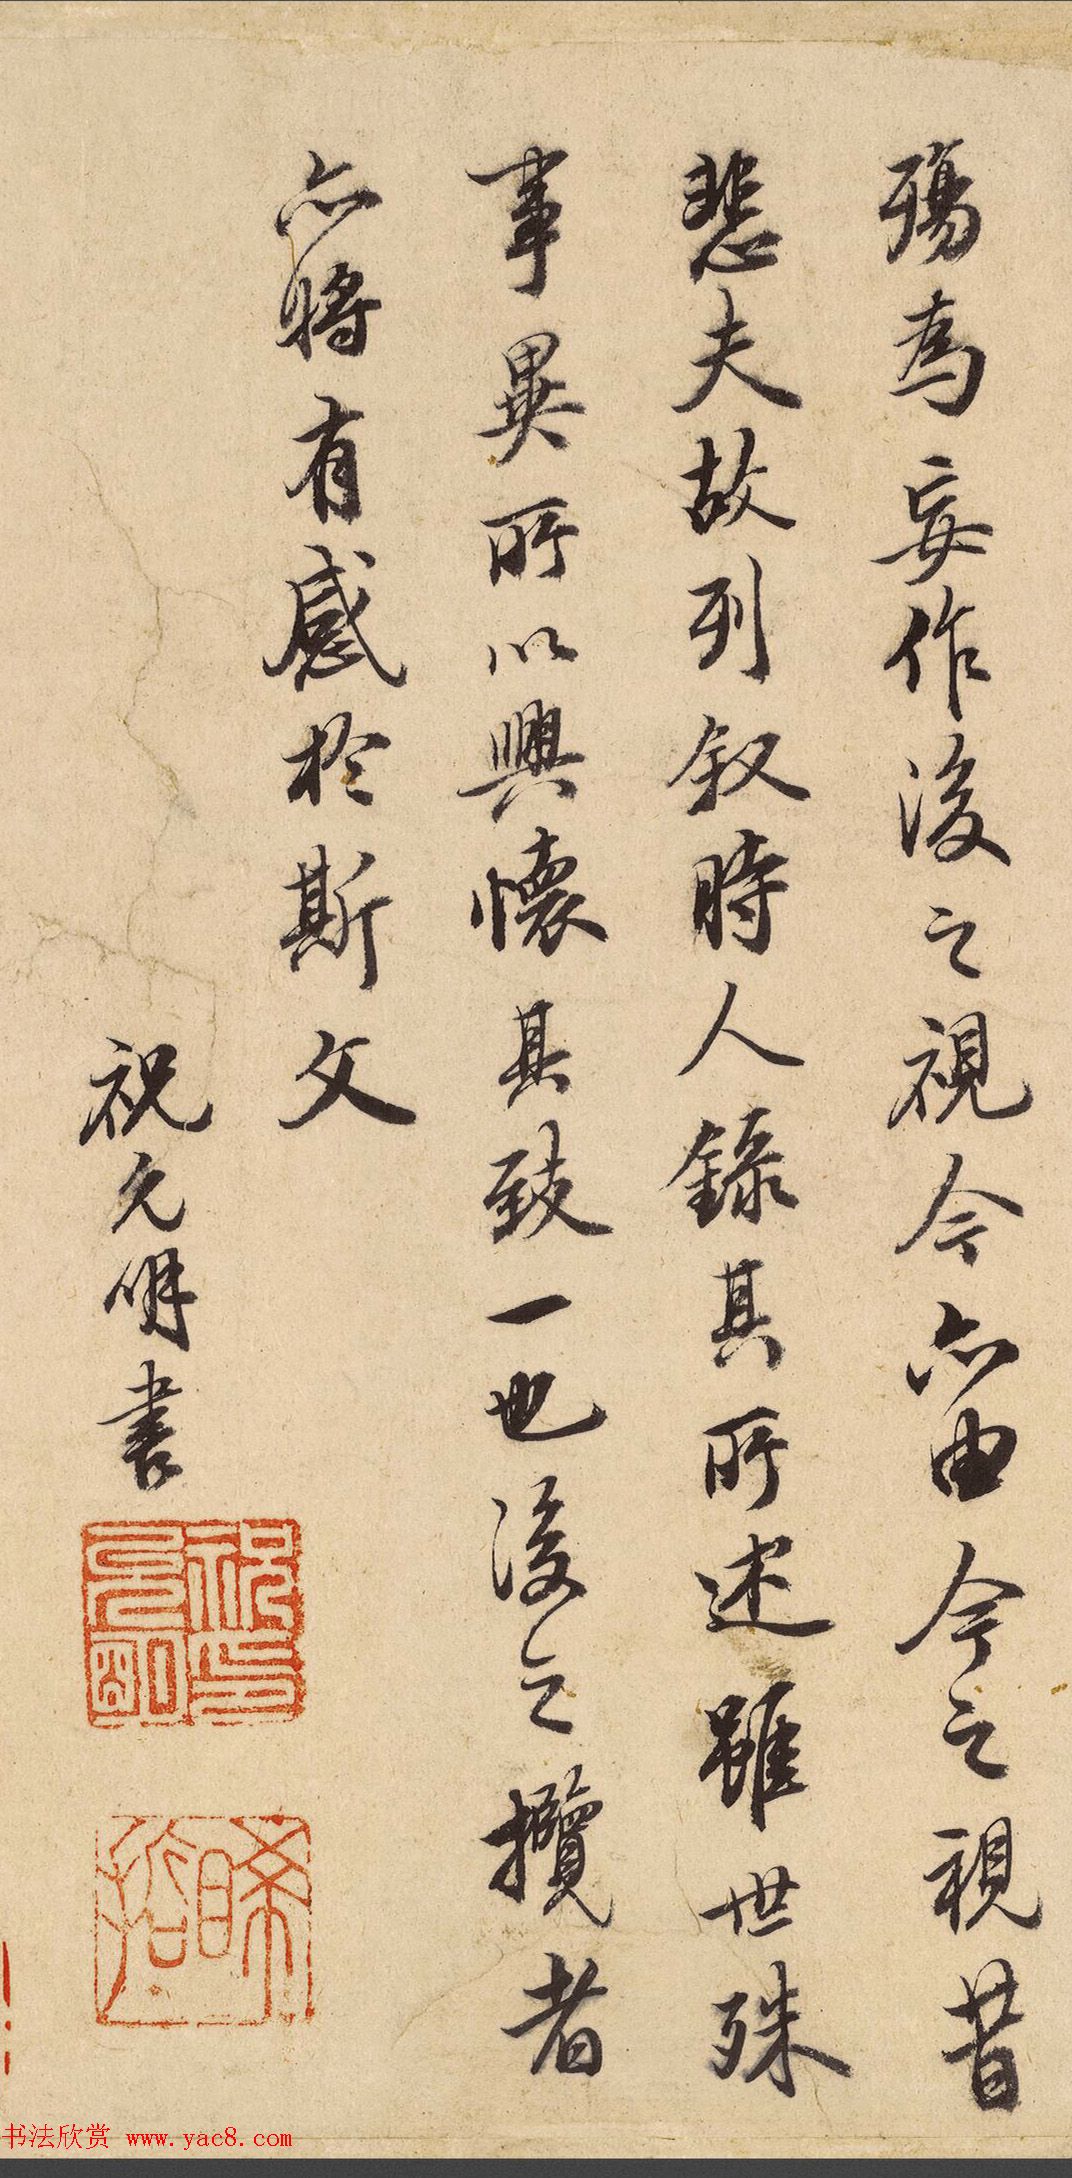 殤為妄作後之視今亦由今之視昔
悲夫故列叙時人錄其所述雖世殊
事異所以興懷其致一也後之攬者
亦將有感於斯文
祝允明書
祝允明印
晞哲
书法欣赏 www.yac8.com